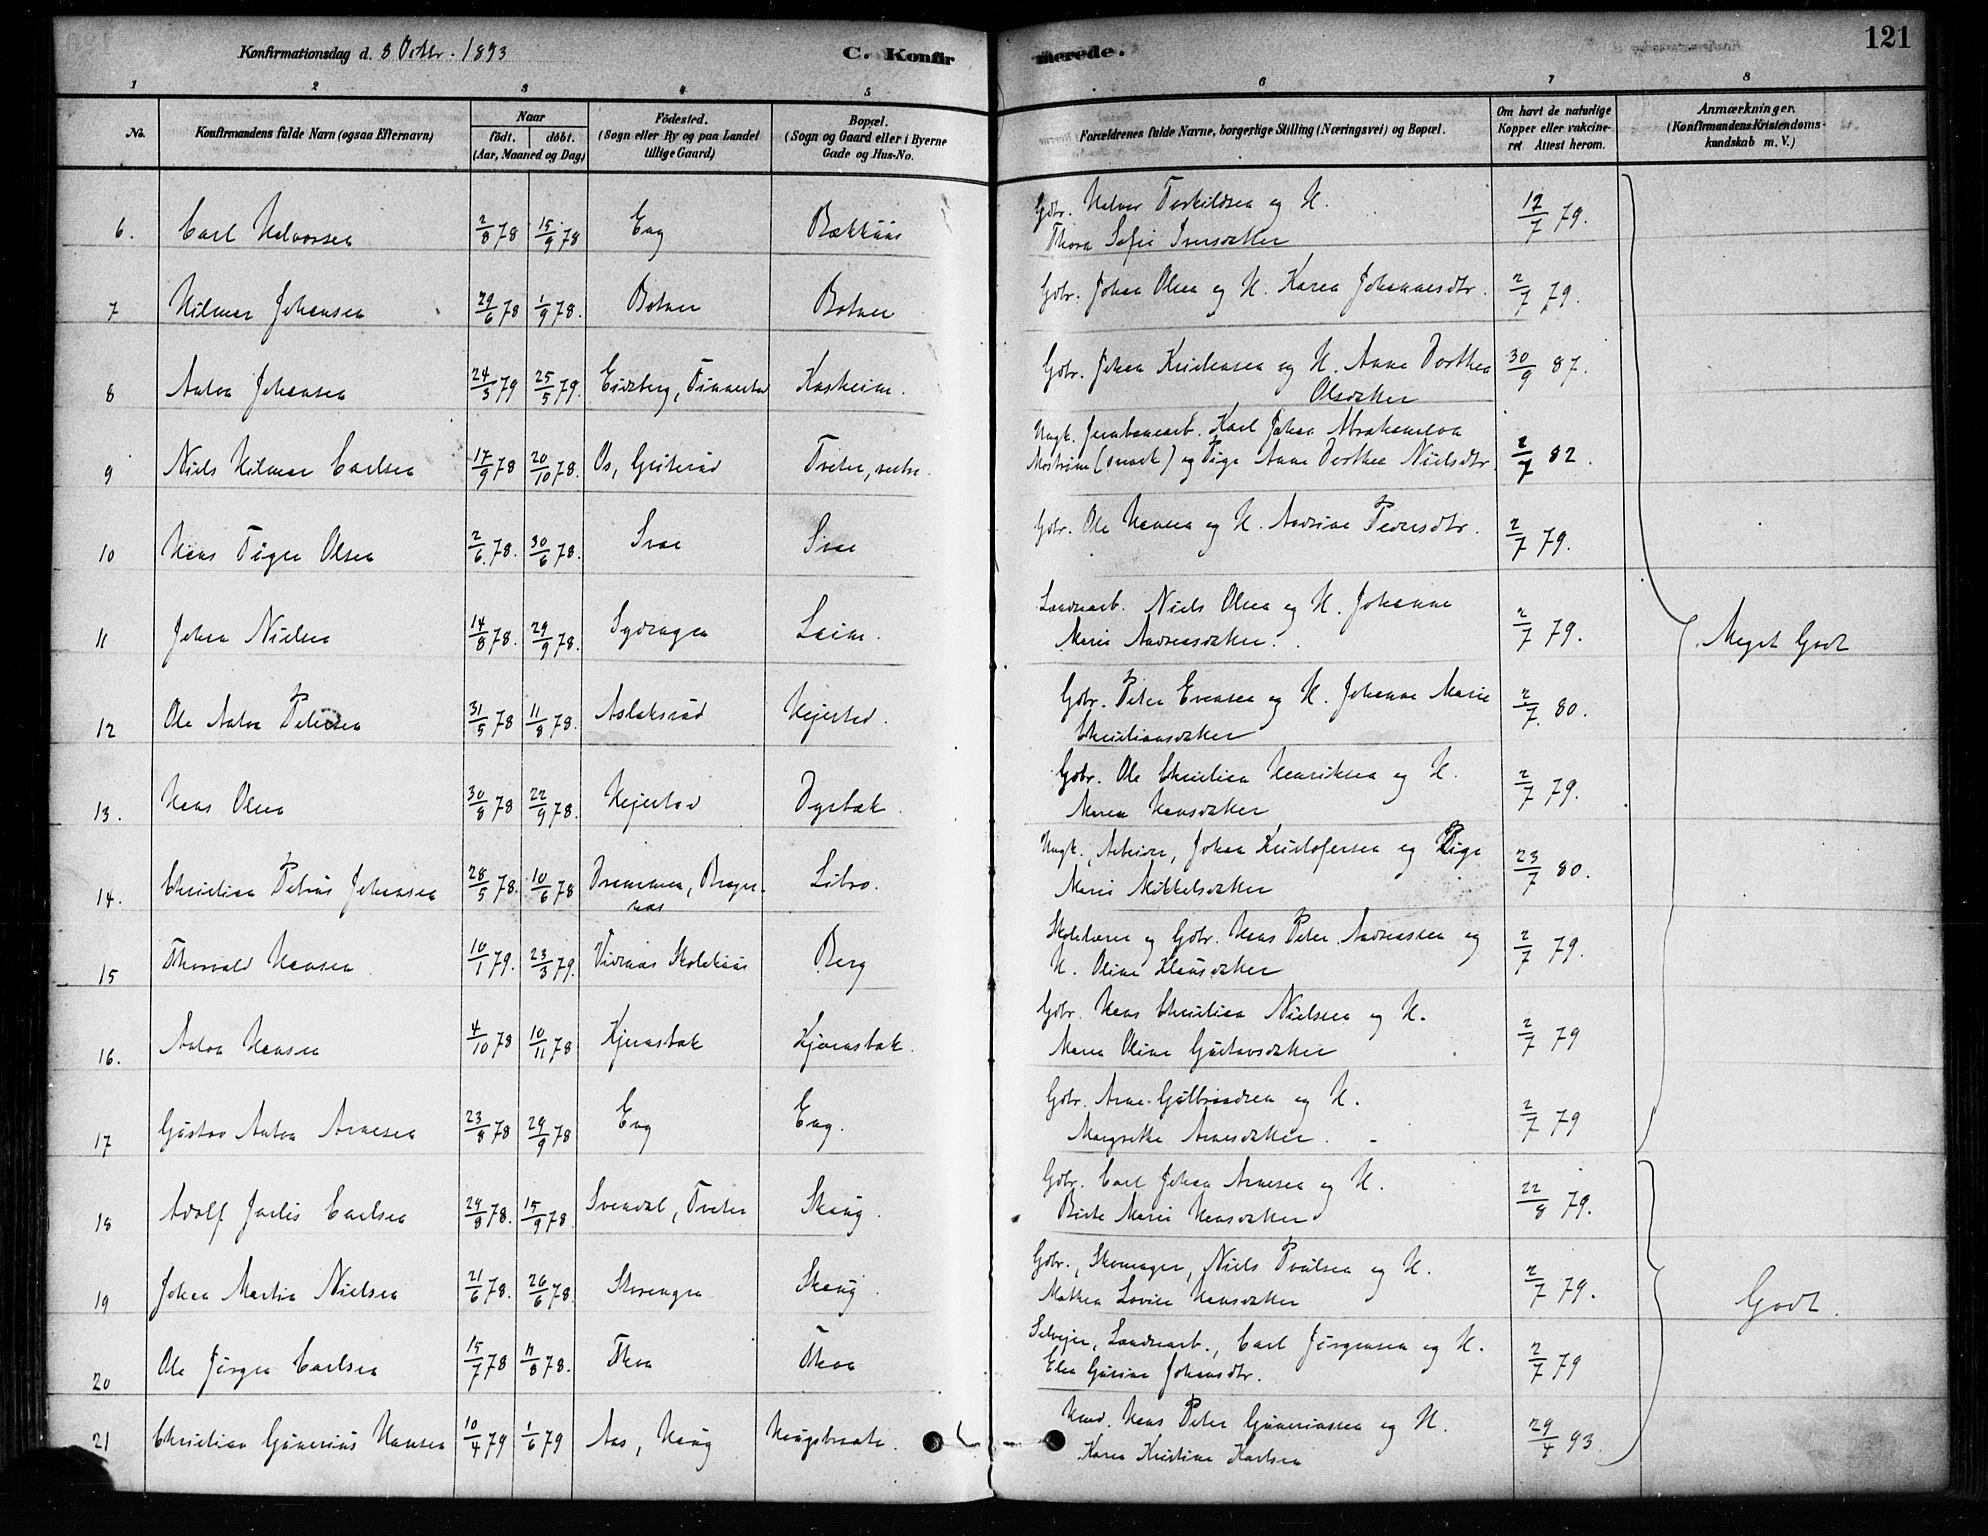 Konfirmationsdag d. 8 Octbr. 1893
C. Konfirmerede.
121
1 2 3 4 5 6 7 8
No.
Konfirmandens fulde Navn (ogsaa Efternavn)
Naar
født. døbt.
(Aar, Maaned og Dag)
Födested.
(Sogn eller By og paa Landet
tillige Gaard)
Bopæl.
(Sogn og Gaard eller i Byerne
Gade og Hus-No.
Forældrenes fulde Navne, borgerlige Stilling (Næringsvei) og Bopæl.
Om havt de naturlige
Kopper eller vakcine-
ret. Attest herom.
Anmærkninger.
(Konfirmandens Kristendoms-
kundskab m. V.)
6. Carl Halvorsen 2/8 78 15/9 78 Eng Bækkhus Gdbr. Halvor Terkildsen og H. 12/7 79.
Thora Sofie Iversdatter
7 Hilmar Johansen 29/6 78 1/9 78. Botner Botner Gdbr. Johan Olsen og H. Karen Johannesdtr. 2/7 79.
8 Anton Johansen 24/3 79 25/5 79. Eidsberg, Kasheim. Gdbr. Johan Kristensen og H. Anne Dorthea 30/9 87.
Olsdatter
9 Niels Hilmar Carlsen 17/9 78 20/10 78. Os, Tveter, Ungk. Jernbanearb. Karl Johan 2/7 82.
(svensk) og Pige Anne Dorthea Nielsdtr.
10 Hans Tiger Olsen 2/6. 78. 30/6 78. Svae Svae Gdbr. Ole Hansen og H. Andrine Pedersdtr. 2/7 79.
11 Johan Nielsen 14/8 78. 29/9 78. Sydengen Leim. Landearb. Niels Olsen og H. Johanne 2/7 79.
Marie Andreasdatter.
Meget Godt
12 Ole Anton Petersen 31/5 78 11/8 78. Aslaksrud Hejerstad. Gdbr. Peter Evensen og H. Johanne Marie 2/7. 80.
Christiansdatter
13. Hans Olsen 30/8 78 22/9 78. Hejerstad Dyrbæk. Gdbr. Ole Christian Henriksen og H. 2/7 79.
Maren Hansdatter
14. Christian Petrus Johansen 28/5 78. 10/6 78 Drammen, Brager- Libro. Ungk., Arbeider, Johan Kristofersen og Pige 23/7 80.
næs
Marie Mikkelsdatter
15 Thorvald Hansen 10/1 79. 23/3 79. Vidnæs Skolehus Berg Skolelærer og Gdbr. Hans Peter Andreassen og 2/7 79.
H. Oline Klausdatter
16. Anton Hansen 4/10 78 10/11 78 Kjernsbæk Kjærnsbæk. Gdbr. Hans Christian Nielsen og H. 2/7 79
Maren Oline Gustavsdatter
17 Gustav Anton Arnesen 23/8 78 29/9 78 Eng Eng. Gdbr. Arne Gulbrandsen og H. 2/7 79
Margrethe Arnesdatter.
18 Adolf Julis Carlsen 24/8 78. 15/9 78. Svendal, Tveter Skaug. Gdbr. Carl Johan Arnesen og H. 22/8 79.
Birte Marie Hansdatter
19 Johan Martin Nielsen 21/6 78. 26/6 78. Skorengen Skaug. Gdbr., Skomager, Niels Poulsen og H. 2/7 79.
Mathea Lovise Hansdatter
Godt.
20 Ole Jørgen Carlsen 15/7 78 11/8 78. Thon Thon Selvejer, Landearb., Carl Jörgensen og H. 2/7 79
Elen Gurine Johansdtr.
21 Christian Gunerius Hansen 10/4 79 1/6 79 Aas, Haug Haugsbraate. Hmd. Hans Peter Gunerussen og H. 29/4 93.
Karen Kristine Karlsen